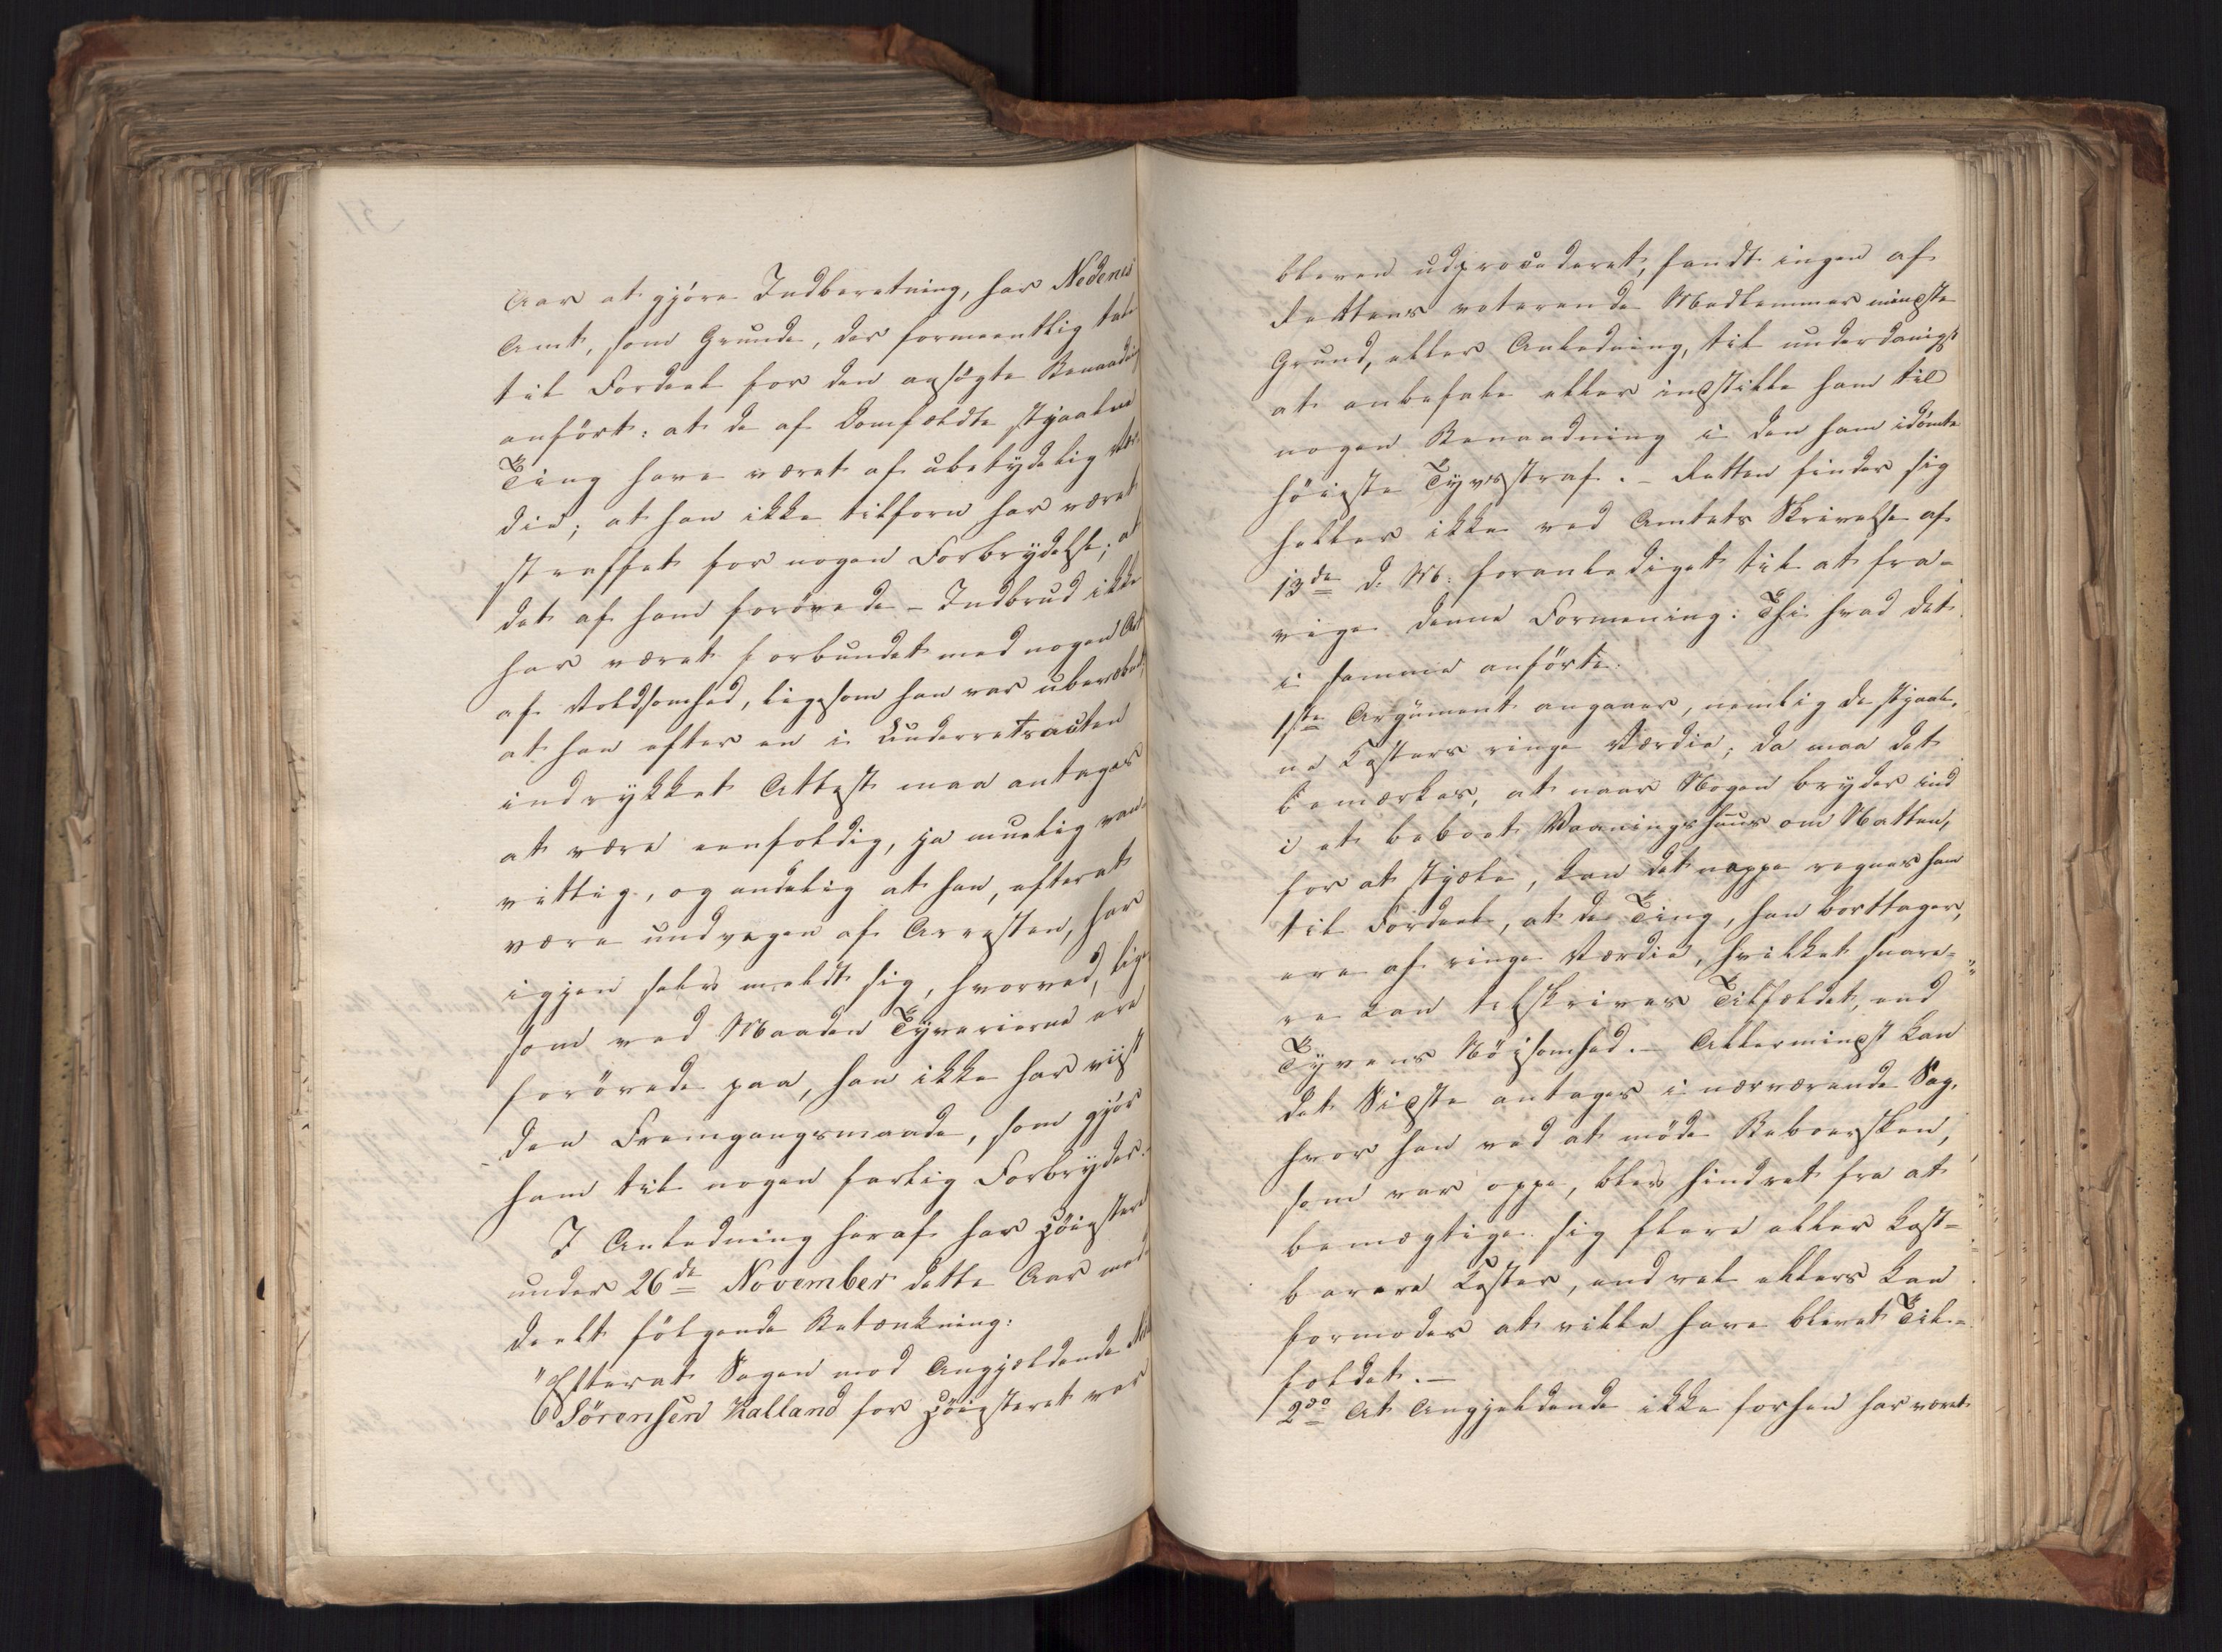 Aar at gjöre Indberetning, har Nedenes
Amt, som Grunde, der formeentlig tale
til Fordeel for den ansögte Benaadning
anfört: at de af Domfældte stjaalne
Ting have været af ubetydelig Vær-
die; at han ikke tilforn har været
straffet for nogen Forbrydelse; at
det af ham forövede Indbrud ikke
har været forbundet med nogen Art
af Voldsomhed, ligesom han var ubevæbnet,
at han efter en i Underretsacten
indrykket Attest maa antages
at være eenfoldig, ja muelig van-
vittig, og endelig at han, efterat
være undvegen af Arresten, har
igjen selv meldt sig, hvorved, lige-
som ved Maaden Tyverierne ere
forövede paa, han ikke har viist
den Fremgangsmaade, som gjör
ham til nogen farlig Forbryder.
I Anledning heraf har Höiesteret
under 26de November dette Aar med-
deelt fölgende Betænkning:
"Efterat Sagen mod Angjældende
Sörensen Kalland for Höiesteret var
bleven udproceederet, fandt ingen af
Rettens voterende Medlemmer mindste
Grund, eller Anledning, til underdanigst
at anbefale eller indstille ham til
nogen Benaadning i den ham idömte
höieste Tyvsstraf. – Retten finder sig
heller ikke ved Amtets Skrivelse af
13de d. M. foranlediget til at fra-
vige denne Formening: Thi hvad det
i samme anförte
1ste Argument angaaer, nemlig de stjaal-
ne Kosters ringe Værdie; da maa det
bemærkes, at naar Nogen bryder ind
i et beboet Vaaningshuus om Natten,
for at stjæle, kan det neppe regnes ham
til Fordeel, at de Ting, han borttager,
ere af ringe Værdie, hvilket snare-
re kan tilskrives Tilfældet, end
Tyvens Nöisomhed. – Allermindst kan
det Sidste antages i nærværende Sag,
hvor han ved at möde Beboersken,
som var oppe, blev hindret fra at
bemægtige sig flere eller kost-
barere Koster, end vel ellers kan
formodes at ville have blevet Til-
fældet. –
2do At Angjeldende ikke forhen har været